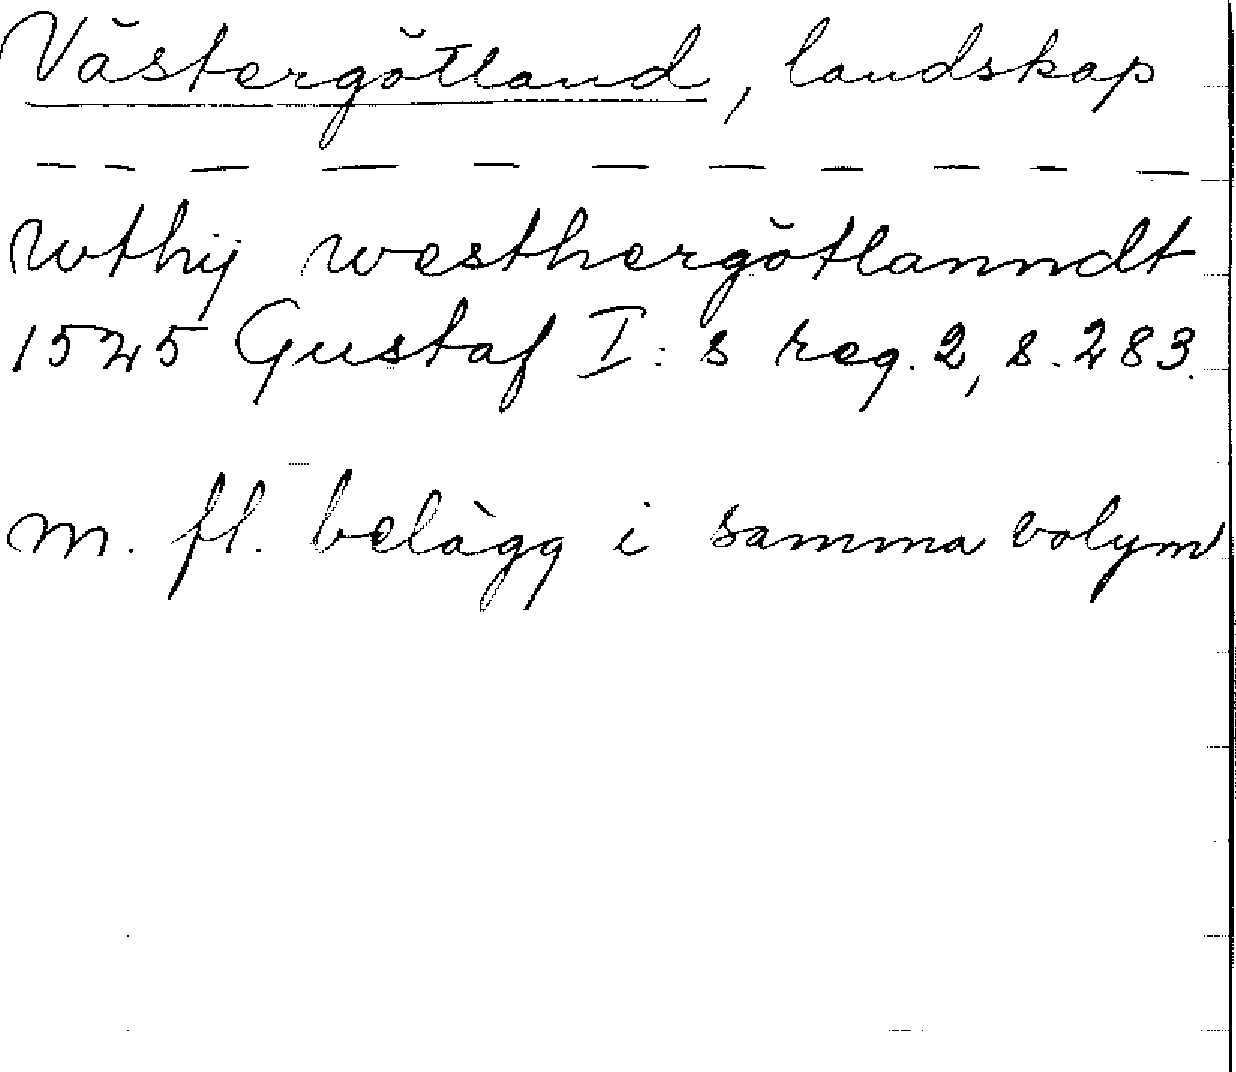 Västergötland, landskap
— — — — — — — — — — —
wthij westhergötlanndt
1525 Gustaf I: s reg. 2, s. 283.
m. fl. belägg i samma volym